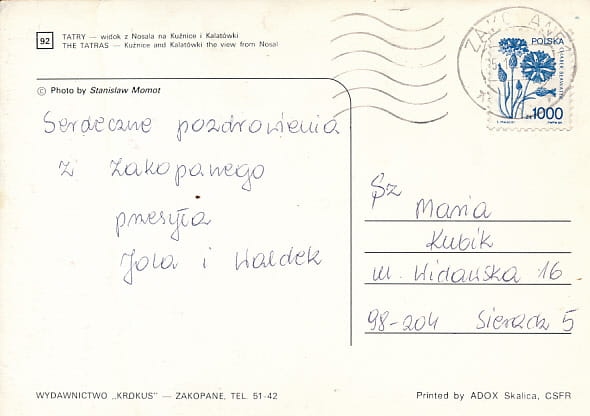 92
TATRY — widok z Nosala na Kuźnice i Kalatówki
THE TATRAS — Kuźnice and Kalatówki the view from Nosal
© Photo by Stanisław Momot
Serdeczne pozdrowienia
z Zakopanego
przesyła
Jola i Waldek
ZAKOPANE
POLSKA
zł 1000
Sz
Maria
Kubik
ul. Widawska 16
98-204 Sieradz 5
WYDAWNICTWO „KROKUS” — ZAKOPANE, TEL. 51-42
Printed by ADOX Skalica, CSFR